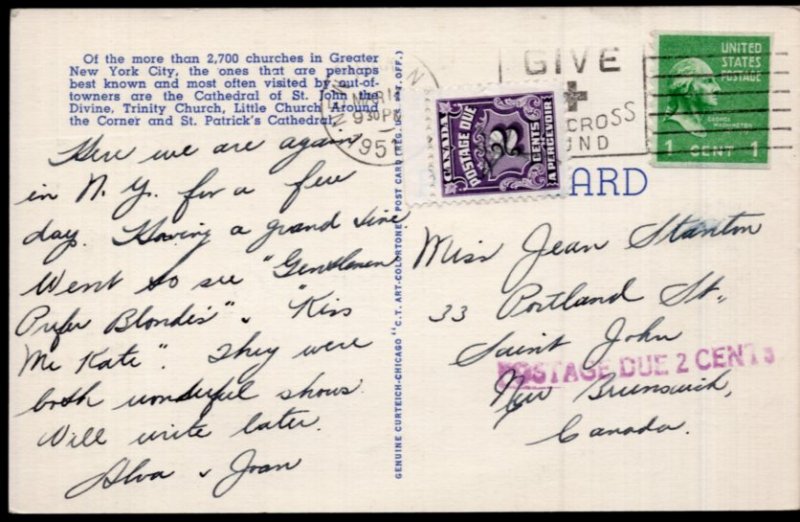 Of the more than 2,700 churches in Greater
New York City, the ones that are perhaps
best known and most often visited by out-of-
towners are the Cathedral of St. John the
Divine, Trinity Church, Little Church Around
the Corner and St. Patrick's Cathedral.
Here we are again
in N. Y. for a few
day. Having a grand time
Went to see "Gentlemen
Prefer Blondes", "Kiss
Me Kate". They were
both wonderful shows.
Will write later.
Alva & Joan
GENUINE CURTEICH-CHICAGO "C.T. ART-COLORTONE" POST CARD (REG. U.S. PAT. OFF.)
9 30 PM
195
GIVE
CROSS
UND
CANADA
POSTAGE DUE
2
CENTS
A PERCEVOIR
UNITED
STATES
POSTAGE
GEORGE
WASHINGTON
1 CENT 1
ARD
Miss Jean Stanton
33 Portland St.,
Saint John
POSTAGE DUE 2 CENTS
New Brunswick,
Canada.